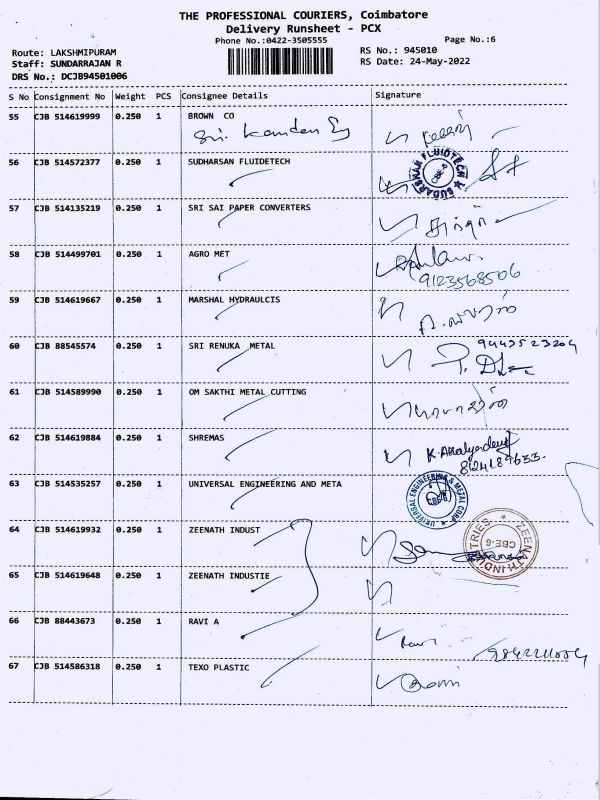 THE PROFESSIONAL COURIERS, Coimbatore
Delivery Runsheet - PCX
Phone No.:0422-3505555
Page No.:6
Route: LAKSHMIPURAM
RS No.: 945010
Staff: SUNDARRAJAN R
RS Date: 24-May-2022
DRS No.: DCJB94501006
S No Consignment No Weight PCS Consignee Details Signature
55 CJB 514619999 0.250 1 BROWN CO
Sri
56 CJB 514572377 0.250 1 SUDHARSAN FLUIDETECH
SUDARSHAN FLUIDTECH CBE-6
57 CJB 514135219 0.250 1 SRI SAI PAPER CONVERTERS
58 CJB 514499701 0.250 1 AGRO MET
9123568506
59 CJB 514619667 0.250 1 MARSHAL HYDRAULCIS
60 CJB 88545574 0.250 1 SRI RENUKA METAL
9443523204
61 CJB 514589990 0.250 1 OM SAKTHI METAL CUTTING
62 CJB 514619884 0.250 1 SHREMAS
8124189633
63 CJB 514535257 0.250 1 UNIVERSAL ENGINEERING AND META
UNIVERSAL ENGINEERING & METAL CORP. CBE-6
64 CJB 514619932 0.250 1 ZEENATH INDUST
ZEENATH INDUSTRIES CBE-6
65 CJB 514619648 0.250 1 ZEENATH INDUSTIE
66 CJB 88443673 0.250 1 RAVI A
Ravi
67 CJB 514586318 0.250 1 TEXO PLASTIC